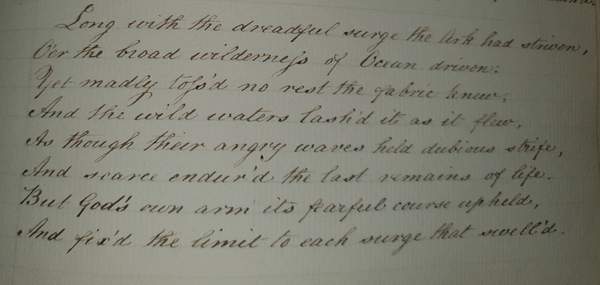 Long with the dreadful surge the Ark had striven,
O'er the broad wilderness of Ocean driven:
Yet madly toss'd no rest the fabric knew.
And the wild waters lash'd it as it flew.
As though their angry waves held dubious strife,
And scarce endur'd the last remains of life.
But God's own arm its fearful course upheld,
And fix'd the limit to each surge that swell'd.